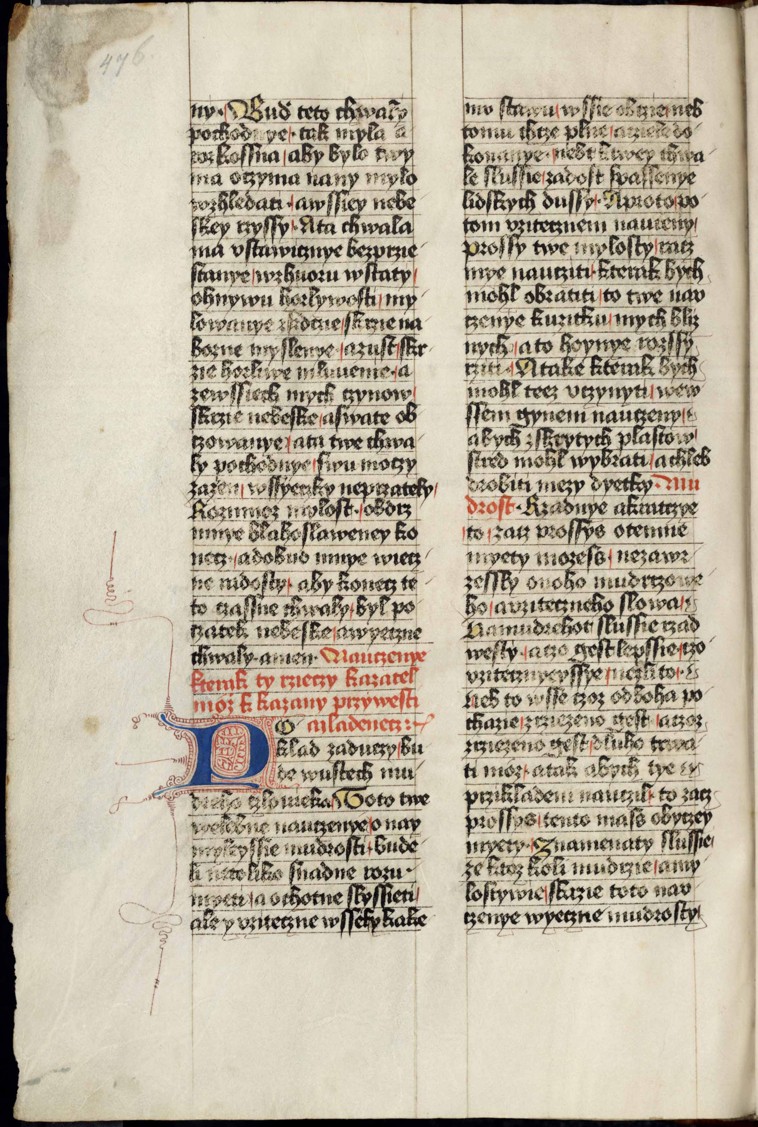 476.
ny· Bud teto chwaly
pochodnye· tak myla a
rozkossna aby bylo twy
ma oczyma na ny mylo
wzhledati· awssiey nebe
skey rzyssy· Ata chwala
ma vstawicznye bezprzie
stanye wzhuoru wstaty
ohnywu horlywosti my
lowanye srdcne skrzie na
bozne myslenye· azust skr
zie horliwe mluuenie· a
zewssiech mych czynow
skrzie nebeske aswate ob
czowanye ata twe chwa
ly pochodnye swu moczy
zazen wssyeczky neprzately
Rozumoz mylost· obdrz
mnye blahoslaweney ko
necz· adobud mnye wiecz
ne radosty· aby konecz te
to czassne chwaly byl po
czatek nebeske awyeczne
chwaly amen· Nauczenye
kterak ty rzieczy kazatel
moz k kazany przywesti
O mladenecz·
klad zaduczy bu
de wustech mu
dreho czlowieka Toto twe
welebne nauczenye o nay
mylyssie mudrosti· bude
li netoliko snadne rozu·
myeti a ochotne slyssieti
ale y vziteczne wsselykake
mu stawu wssie obzieneb
tomu chcze plne azziele do
konanye· nebt twey chwa
le slussie zadost spassenye
lidskych dussy· Aproto po
tom vzitecznem nauceny
prossy twe mylosty racz
mye naucziti kterak bych
mohl obratiti to twe nau
czenye kuzitku mych bliz
nych ato hoynye rozssy
rziti· Atake kterak bych
mohl teez vczynyti wew
ssem gynem nauczeny
abych zskrytych plastow
stred mohl wybrati achleb
drobiti mezy dyetky· Mu
drost· Rzadnye akratczye
to zacz prossys otemne
myety mozess· nezawr
zessly onoho mudrzowe
ho avzitecznecho slowa
Namudrehot slussie rzad
westy· aczo gest lepssie czo
vzitecznyeyssye nezli to·
Neb to wsse czoz odboha po
chazie zrziezeno gest· aczoz
zrziezeno gest dluho trwa
ti moz· atak abych tye
przikladem nauczil· to zacz
prossys tento mass obyczey
myety· Znamenaty slussie
ze ktoz koli mudrzie amy
lostywie skrzie toto nau
czenye wyeczne mudrosty